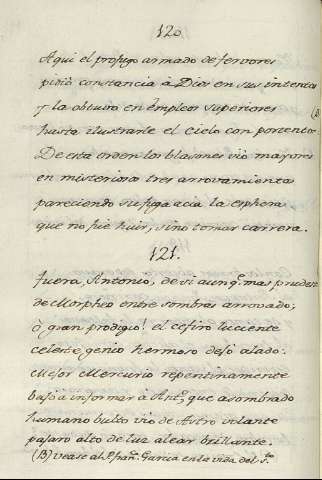 120
Aqui el profugo armado de fervores
pidiò constancia à Dios en sus intentos
y la obtuvo en empleos superiores
hasta ilustrarle el Cielo con portentos.
De esta orden los blasones viò mayores
en misteriosos tres arrovamientos
pareciendo su fuga acia la esphera
que no fue huir, sino tomar carrera.
121.
Fuera, Antonio, de si aunq.e mas prudente
de Morpheo entre sombras arrovado;
ò gran prodigio! el cefiro luciente
celeste, genio hermoso
Mejor Mercurio repentinamente
baxò à informar à Ant.o que asombrado
humano bulto viò de Astro volante
pajaro alto de luz alear brillante.
(B) vease al P. fran.co Garcia en la vida del S.to